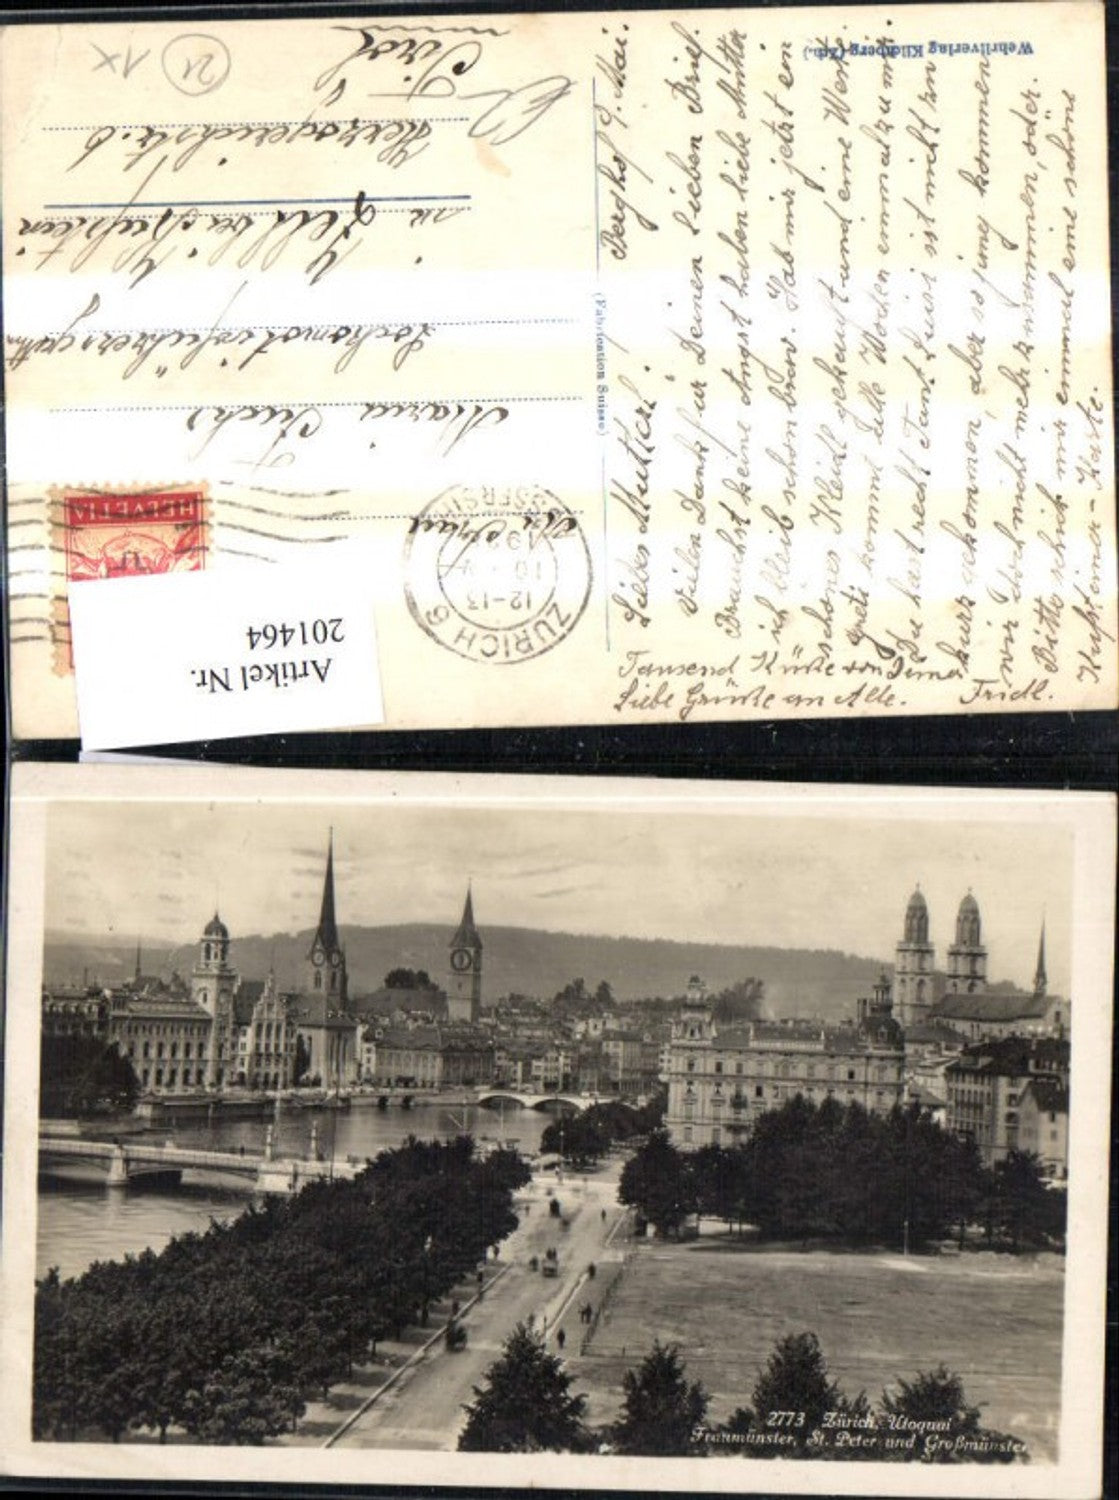 Berghof 9. Mai.
Liebes Mutterl!
Vielen Dank für Deinen lieben Brief.
Brauchst keine Angst haben liebe Mutter
ich bleib schon brav. Hab mir jetzt ein
schönes Kleid gekauft und eine Weste.
Greti kommt alle Wochen einmal zu mir.
Du hast recht, Tant Luisi ist nicht zu
kurz gekommen, aber so jung kommen
wir doch nicht mehr zusammen, oder.
Bitte schick mir einmal eine schöne
Kufsteiner-Karte.
Tausend Küsse von Deiner
Liebe Grüsse an Alle. Fridl.
Wehrliverlag Kilchberg (Zch.)
(Fabrication Suisse)
An Frau
Maria Fuchs
Lokomotivführersgattin
in Zell bei Kufstein
Herzogerichstr. 6
Tirol
21
1x
HELVETIA
ZÜRICH 6
12-13
10. V
Artikel Nr.
201464
2773 Zürich, Utoquai
Fraumünster, St. Peter und Großmünster